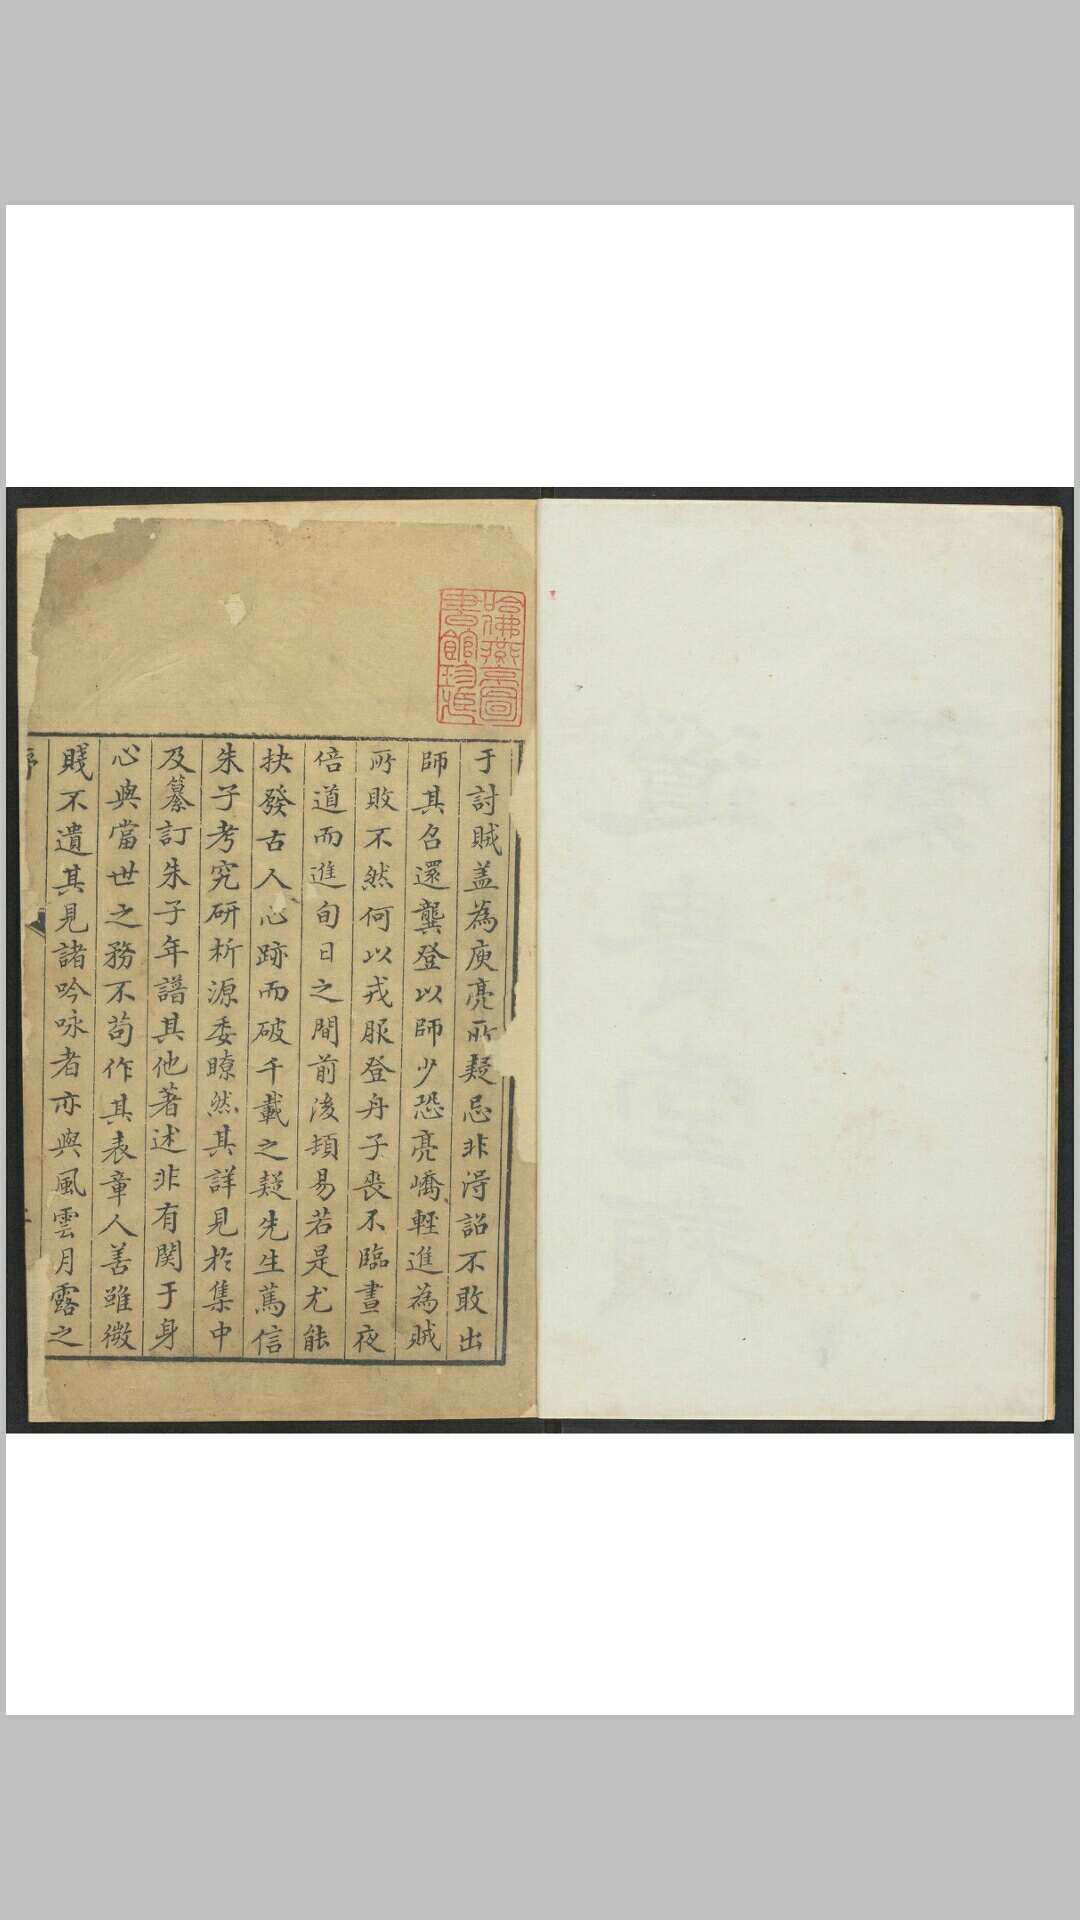 哈佛燕京圖
書館珍藏
于討賊盖為庾亮所疑忌非淂詔不敢出
師其召還龔登以師少恐亮嶠輕進為賊
所敗不然何以戎服登舟子喪不臨晝夜
倍道而進旬日之間前後頓易若是尤能
抉發古人心跡而破千載之疑先生篤信
朱子考究研析源委瞭然其詳見於集中
及纂訂朱子年譜其他著述非有関于身
心與當世之務不苟作其表章人善雖微
賤不遺其見諸吟咏者亦與風雲月露之
序